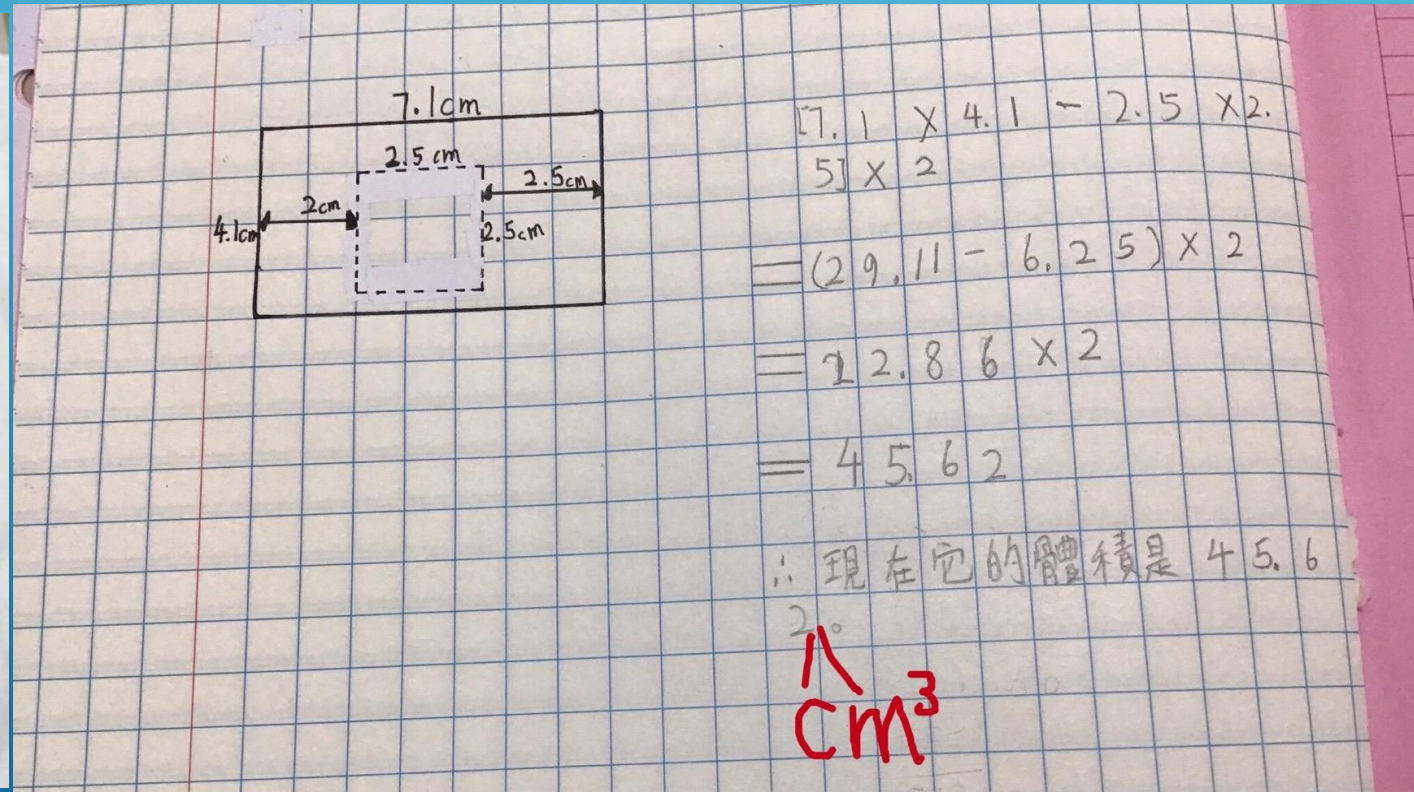 7.1cm
2.5 cm
2.5cm
2cm
4.1cm
2.5cm
[7.1 × 4.1 - 2.5 × 2.
5] × 2
=(29.11 - 6.25) × 2
= 22.86 × 2
= 45.62
∴ 現在它的體積是 45.6
2。
cm³